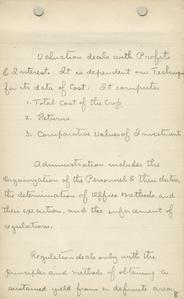 Valuation deals with Profits
& Interest. It is dependent on Technique
for its data of Cost. It computes
1. Total Cost of the Crop
2. Returns
3. Comparative Values of Investments
Administration includes the
Organization of the Personnel & their duties,
the determination of Office Methods and
their execution, and the enforcement of
regulations.
Regulation deals only with the
principles and methods of obtaining a
sustained yield from a definite area,